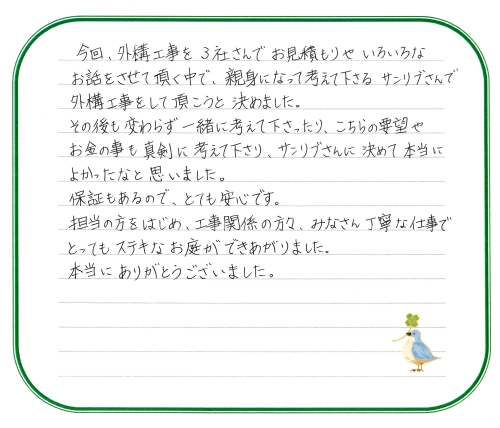 今回、外構工事を 3社さんで お見積もりや いろいろな
お話をさせて頂く中で、親身になって考えて下さる サンリブさんで
外構工事をして頂こうと 決めました。
その後も変わらず一緒に考えて下さったり、こちらの要望や
お金の事も真剣に考えて下さり、サンリブさんに 決めて 本当に
よかったなと思いました。
保証もあるので、とても安心です。
担当の方をはじめ、工事関係の方々、みなさん丁寧な仕事で
とっても ステキな お庭が できあがりました。
本当に ありがとうございました。